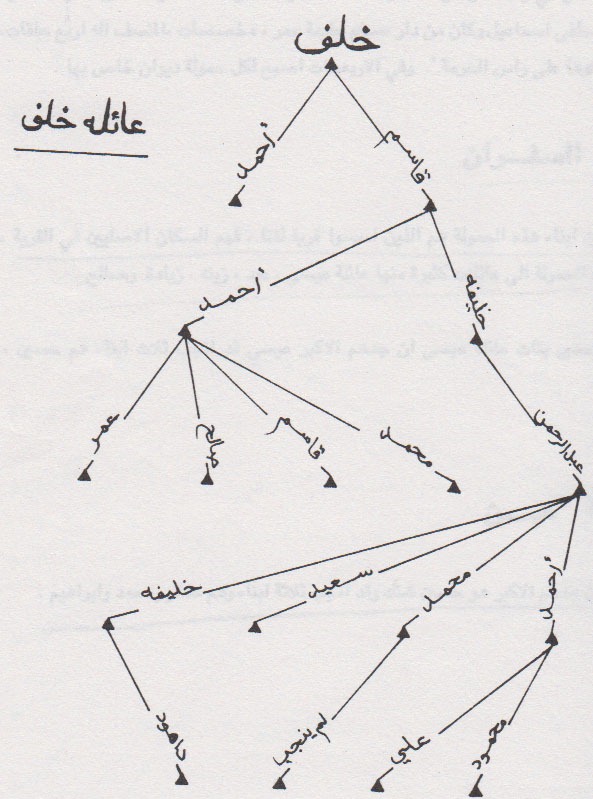 خلف
عائله خلف
قاسم
أحمد
خليفه
أحمد
عبدالرحمن
محمد
قاسم
صالح
عمر
أحمد
محمد
سعيد
خليفه
محمود
علي
لم ينجب
داهود